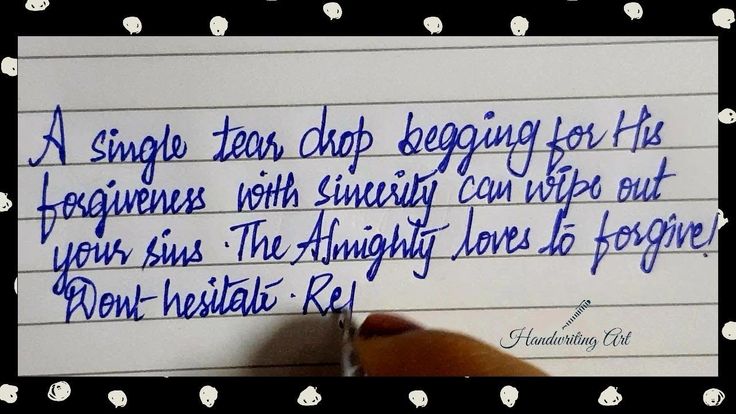 A single tear drop begging for His
forgiveness with sincerity can wipe out
your sins. The Almighty loves to forgive!
Dont hesitate. Re
Handwriting Art